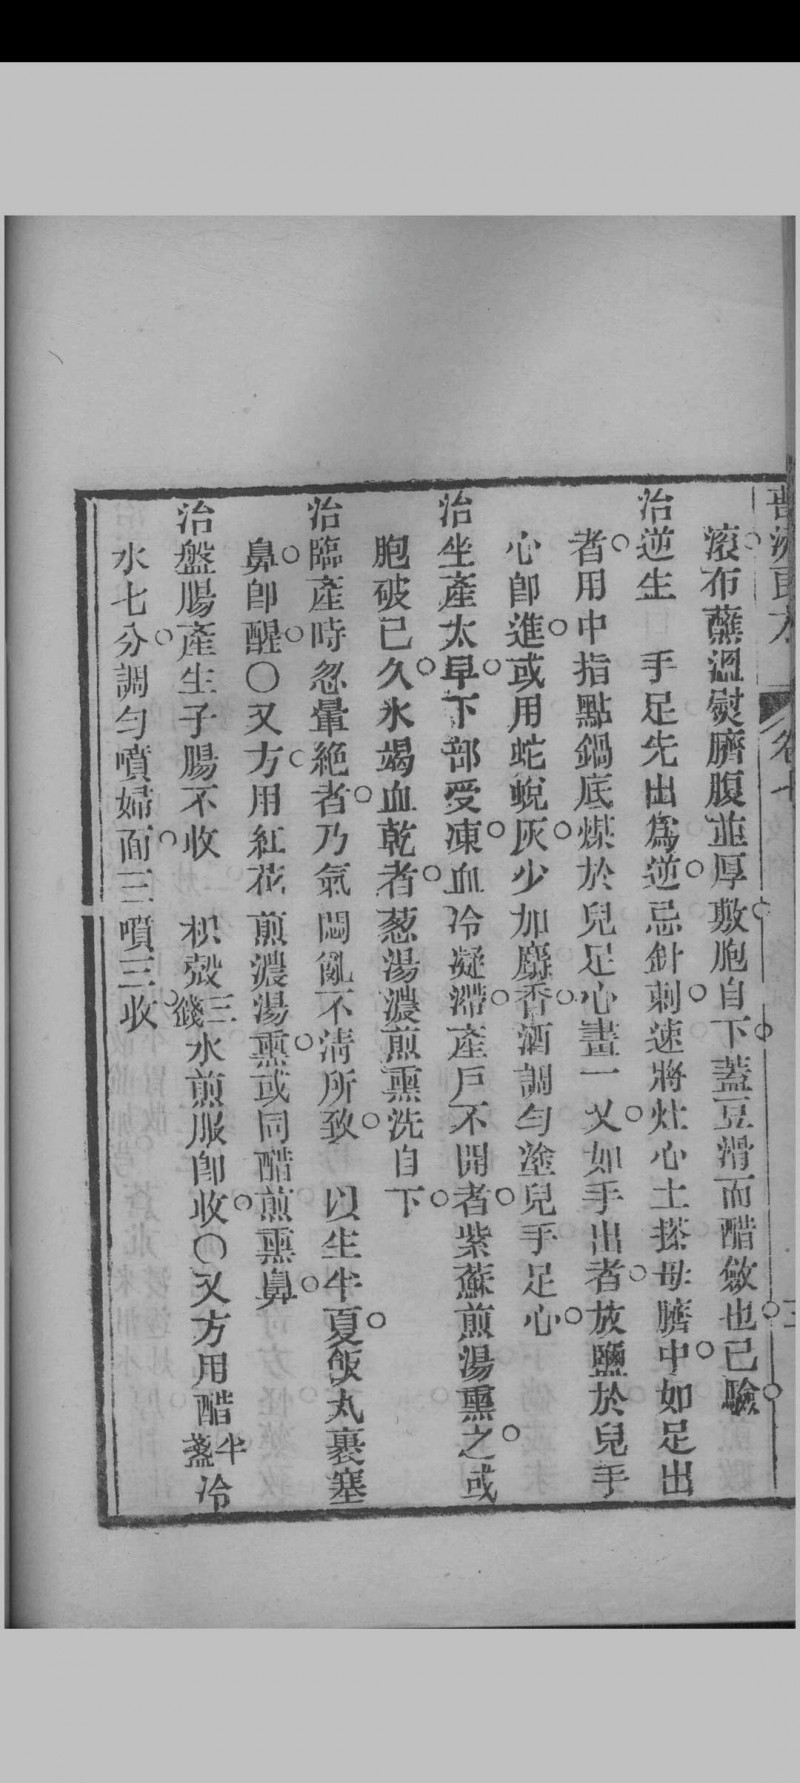 普濟良方 卷七 三
滚布蘸溫熨臍腹並厚敷胞自下蓋豆滑而醋斂也已驗
治逆生 手足先出爲逆忌針刺速將灶心土搽母臍中如足出
者用中指點鍋底煤於兒足心畫一乂如手出者放鹽於兒手
心卽進或用蛇蛻灰少加麝香酒調勻塗兒手足心
治坐產太早下部受凍血冷凝滯產戶不開者紫蘇煎湯熏之或
胞破已久水竭血乾者葱湯濃煎熏洗自下
治臨產時忽暈絶者乃氣悶亂不清所致 以生半夏飯丸裹塞
鼻卽醒〇又方用紅花煎濃湯熏或同醋煎熏鼻
治盤腸產生子腸不收 枳殼三錢水煎服卽收〇又方用醋半盞冷
水七分調勻噴婦面三噴三收